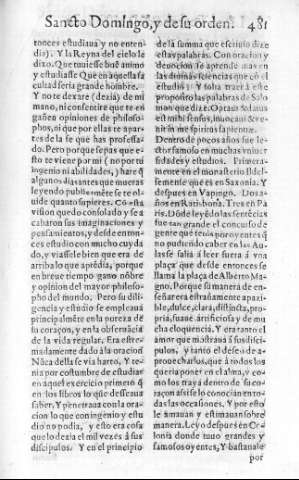 Sancto Domingo, y de su orden. 481
tonces estudiaua y no enten-
dia). Y la Reyna del cielo le
dixo. Que tuuiesse buē animo
y estudiasse Que en aquella fa
cultad seria grande hombre.
Y no te dexare (dezia) de mi
mano, ni consentire que te en
gañen opiniones de philoso-
phos, ni que por ellas te apar-
tes de la fe que has professa-
do. Pero porque sepas que es-
to te viene por mi (no por tu
ingenio ni abilidades,) hare q̄
algunos dias antes que mueras
leyendo public mēte se te ol-
uide quanto supieres. Cō esta
vision quedo consolado y se a
cabaron sus imaginaciones y
pensamientos, y desde enton-
ces estudio con mucho cuyda
do, y viasse le bien que era de
arriba lo que aprēdia, porque
en breue tiempo gano nōbre
y opinion del mayor philoso-
pho del mundo. Pero su dili-
gencia y estudio se empleaua
principalmente en la pureza dē
su coraçon, y en la obseruācia
de la vida regular. Era estre-
madamente dado a la oracion
Nūca della se via harto, Y te-
nia por costumbre de estudiar
en aquel exercicio primero q̄
en los libros lo que desseaua
saber. Y penetraua con la ora-
cion lo que con ingenio y estu
dio no podia, y esto era cosa
que lo dezia el mil vezes à sus
discipulos. Y en el principio
de la summa que escriuio dize
estas palabras. Con oracion y
deuocion se aprende mas en
estas cosas diuinas que con el
estudio. Y solia traer a este
proposito las palabras de Salo
mon que dize. Optaui & datus
est mihi sensus, inuocaui & ve
nit in me spiritus sapientiæ.
Dentro de pocos años fue le-
ctor famoso en muchas vniuer
sidades y estudios. Primera-
mente en el monasterio
que es en Saxonia. Y
despues en Vapingo. Dos a-
ños en Ratisbona. Tres en Pa
ris. Dōde leyēdo las sentēcias
fue tan grande el concurso de
gente que tenia por oyentes q̄
no pudiendo caber en las Au-
las se salia à leer fuera à vna
plaça que desde entonces se
llama la plaça de Alberto Ma-
gno. Porque su manera de en-
señar era estrañamente apazi-
ble, dulce, clara, distincta, pro-
pria, suaue artificiosa y de mu-
cha eloquencia. Y era tanto el
amor que mostraua à sus disci-
pulos, y tanto el desseo de a-
prouecharlos, que los queria à
todos poner en el alma, y co-
mo los traya dentro de su co-
raçon assi se lo conocian en to-
das las ocasiones. Y por esto
le amauan y estimauan sobre
manera. Leyo despues en Co-
lonia donde tuuo grandes y
famosos oyentes, Y bastanale
por